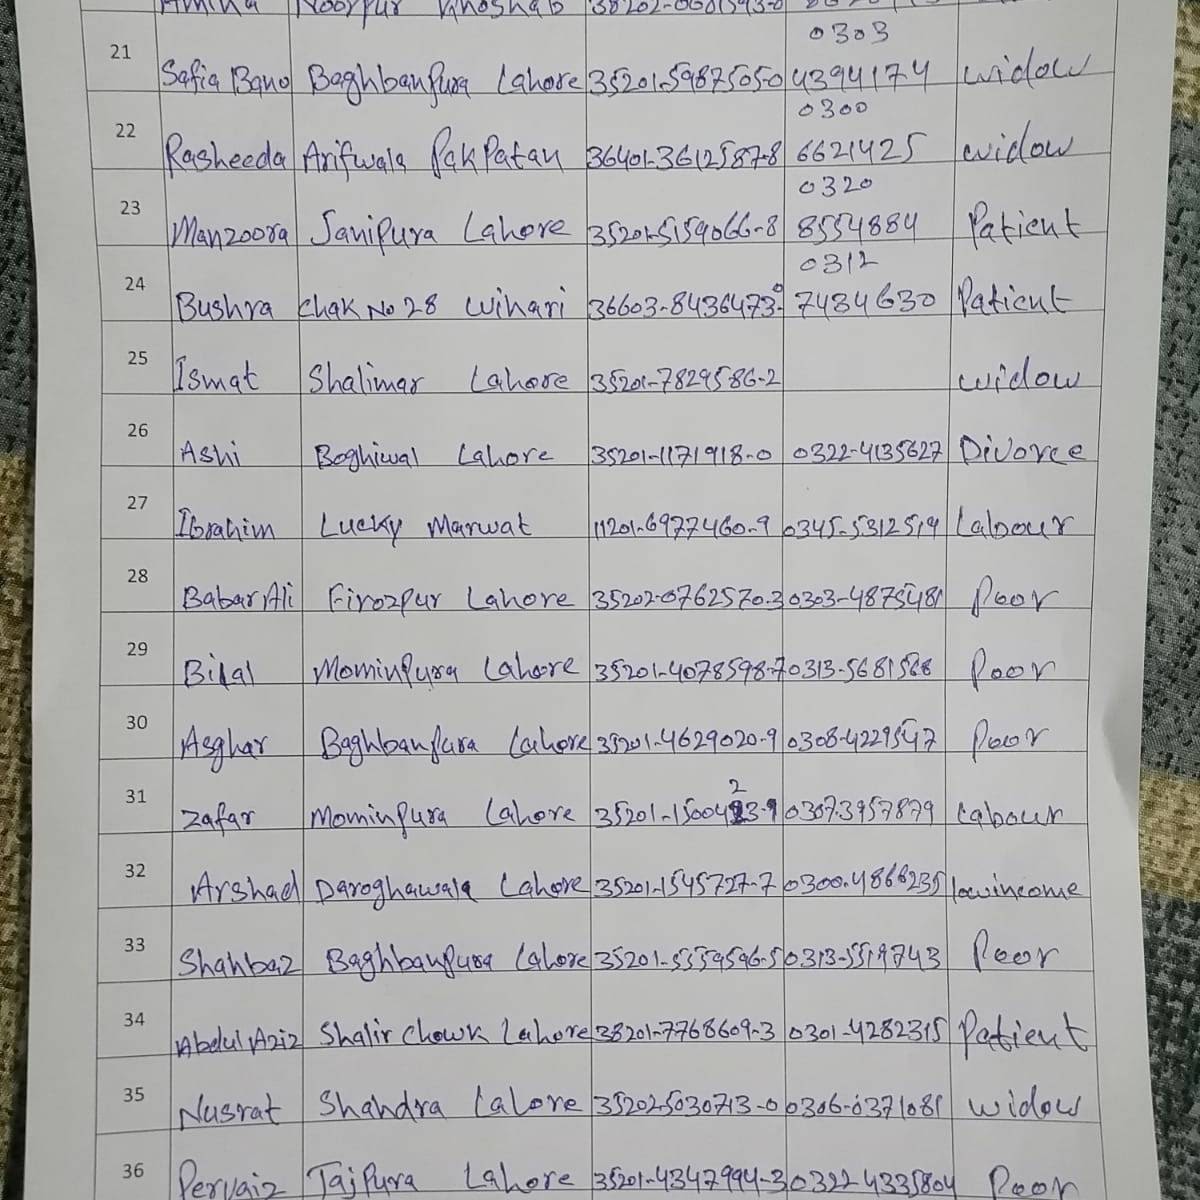 Amina Noorpur Khoshab
21 Safia Bano Baghbanpura Lahore 35201-5987505-0 0303 4394174 widow
22 Rasheeda Arifwala PakPatan 36401-3612587-8 0300 6621425 widow
23 Manzoora Janipura Lahore 35201-5159066-8 0320 8554884 Patient
24 Bushra Chak No 28 Wihari 36603-8436473-0 0312 7484630 Patient
25 Ismat Shalimar Lahore 35201-7829586-2 widow
26 Ashi Boghiwal Lahore 35201-1171918-0 0322-4135627 Divorce
27 Ibrahim Lucky Marwat 11201-6977460-9 0345-5312519 Labour
28 Babar Ali Firozpur Lahore 35202-0762570-3 0303-4875481 Poor
29 Bilal Mominpura Lahore 35201-4078598-7 0313-5681568 Poor
30 Asghar Baghbanpura Lahore 35201-4629020-9 0308-4229547 Poor
31 Zafar Mominpura Lahore 35201-1500423-9 0307-3957879 Labour
32 Arshad Daroghawala Lahore 35201-1545727-7 0300-4866235 lowincome
33 Shahbaz Baghbanpura Lahore 35201-5559596-5 0313-5519743 Poor
34 Abdul Aziz Shalir Chowk Lahore 38201-7768609-3 0301-4282315 Patient
35 Nusrat Shahdra Lahore 35202-5030713-0 0306-0371081 widow
36 Pervaiz Tajpura Lahore 35201-4347994-3 0322 4335804 Poor